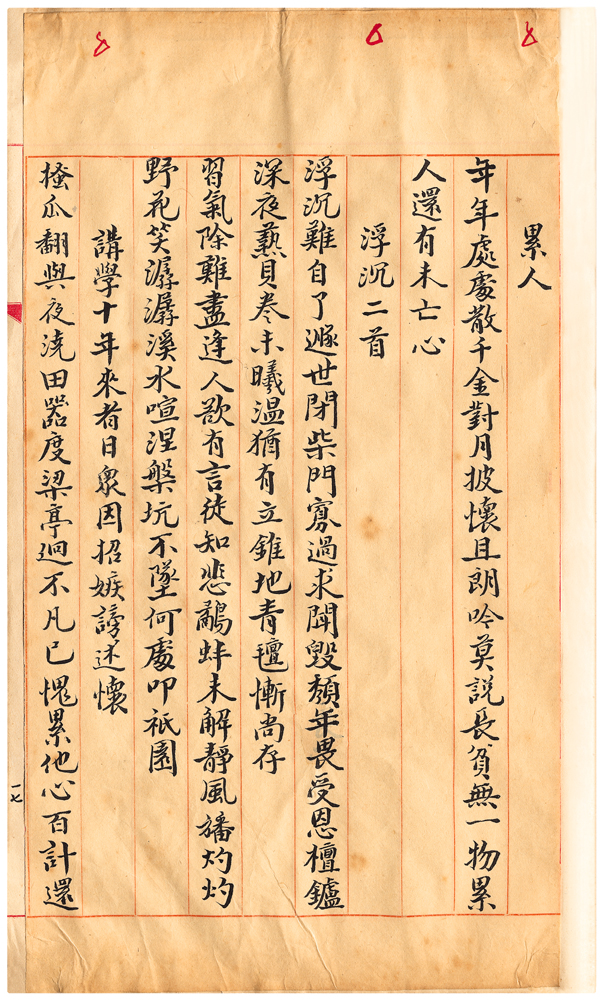 累人
年年處處散千金對月披懷且朗吟莫說長貧無一物累
人還有未亡心
浮沉二首
浮沉難自了遯世閉柴門寡過求聞毀頹年畏受恩檀鑪
深夜爇貝卷未曦溫猶有立錐地青氊慚尚存
習氣除難盡逢人欲有言徒知悲鷸蚌未解靜風旛灼灼
野花笑潺潺溪水喧涅槃坑不墜何處叩祇園
講學十年來者日衆因招嫉謗述懷
搔瓜翻與夜澆田器度梁亭迥不凡已愧累他心百計還
一七